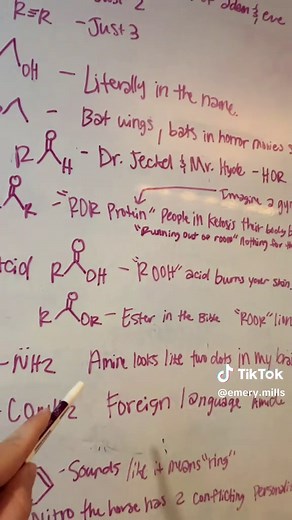 of adam & eve
R≡R - Just 3
OH - Literally in the name.
- Bat wings, bats in horror movies
R O H - Dr. Jeckel & Mr. Hyde - HOR
Imagine a gym
O R - "ROR Protein" People in Ketosis their body
"Running out of room" nothing for th
Acid R O OH - "ROOH" acid burns your skin
R O OR - Ester in the Bible "ROOR" lion
-N̈H2 Amine looks like two dots in my brai
-CONH2 Foreign language Amide
- Sounds like it means "ring"
Nitro the horse has 2 conflicting personali
TikTok
@emery.mills